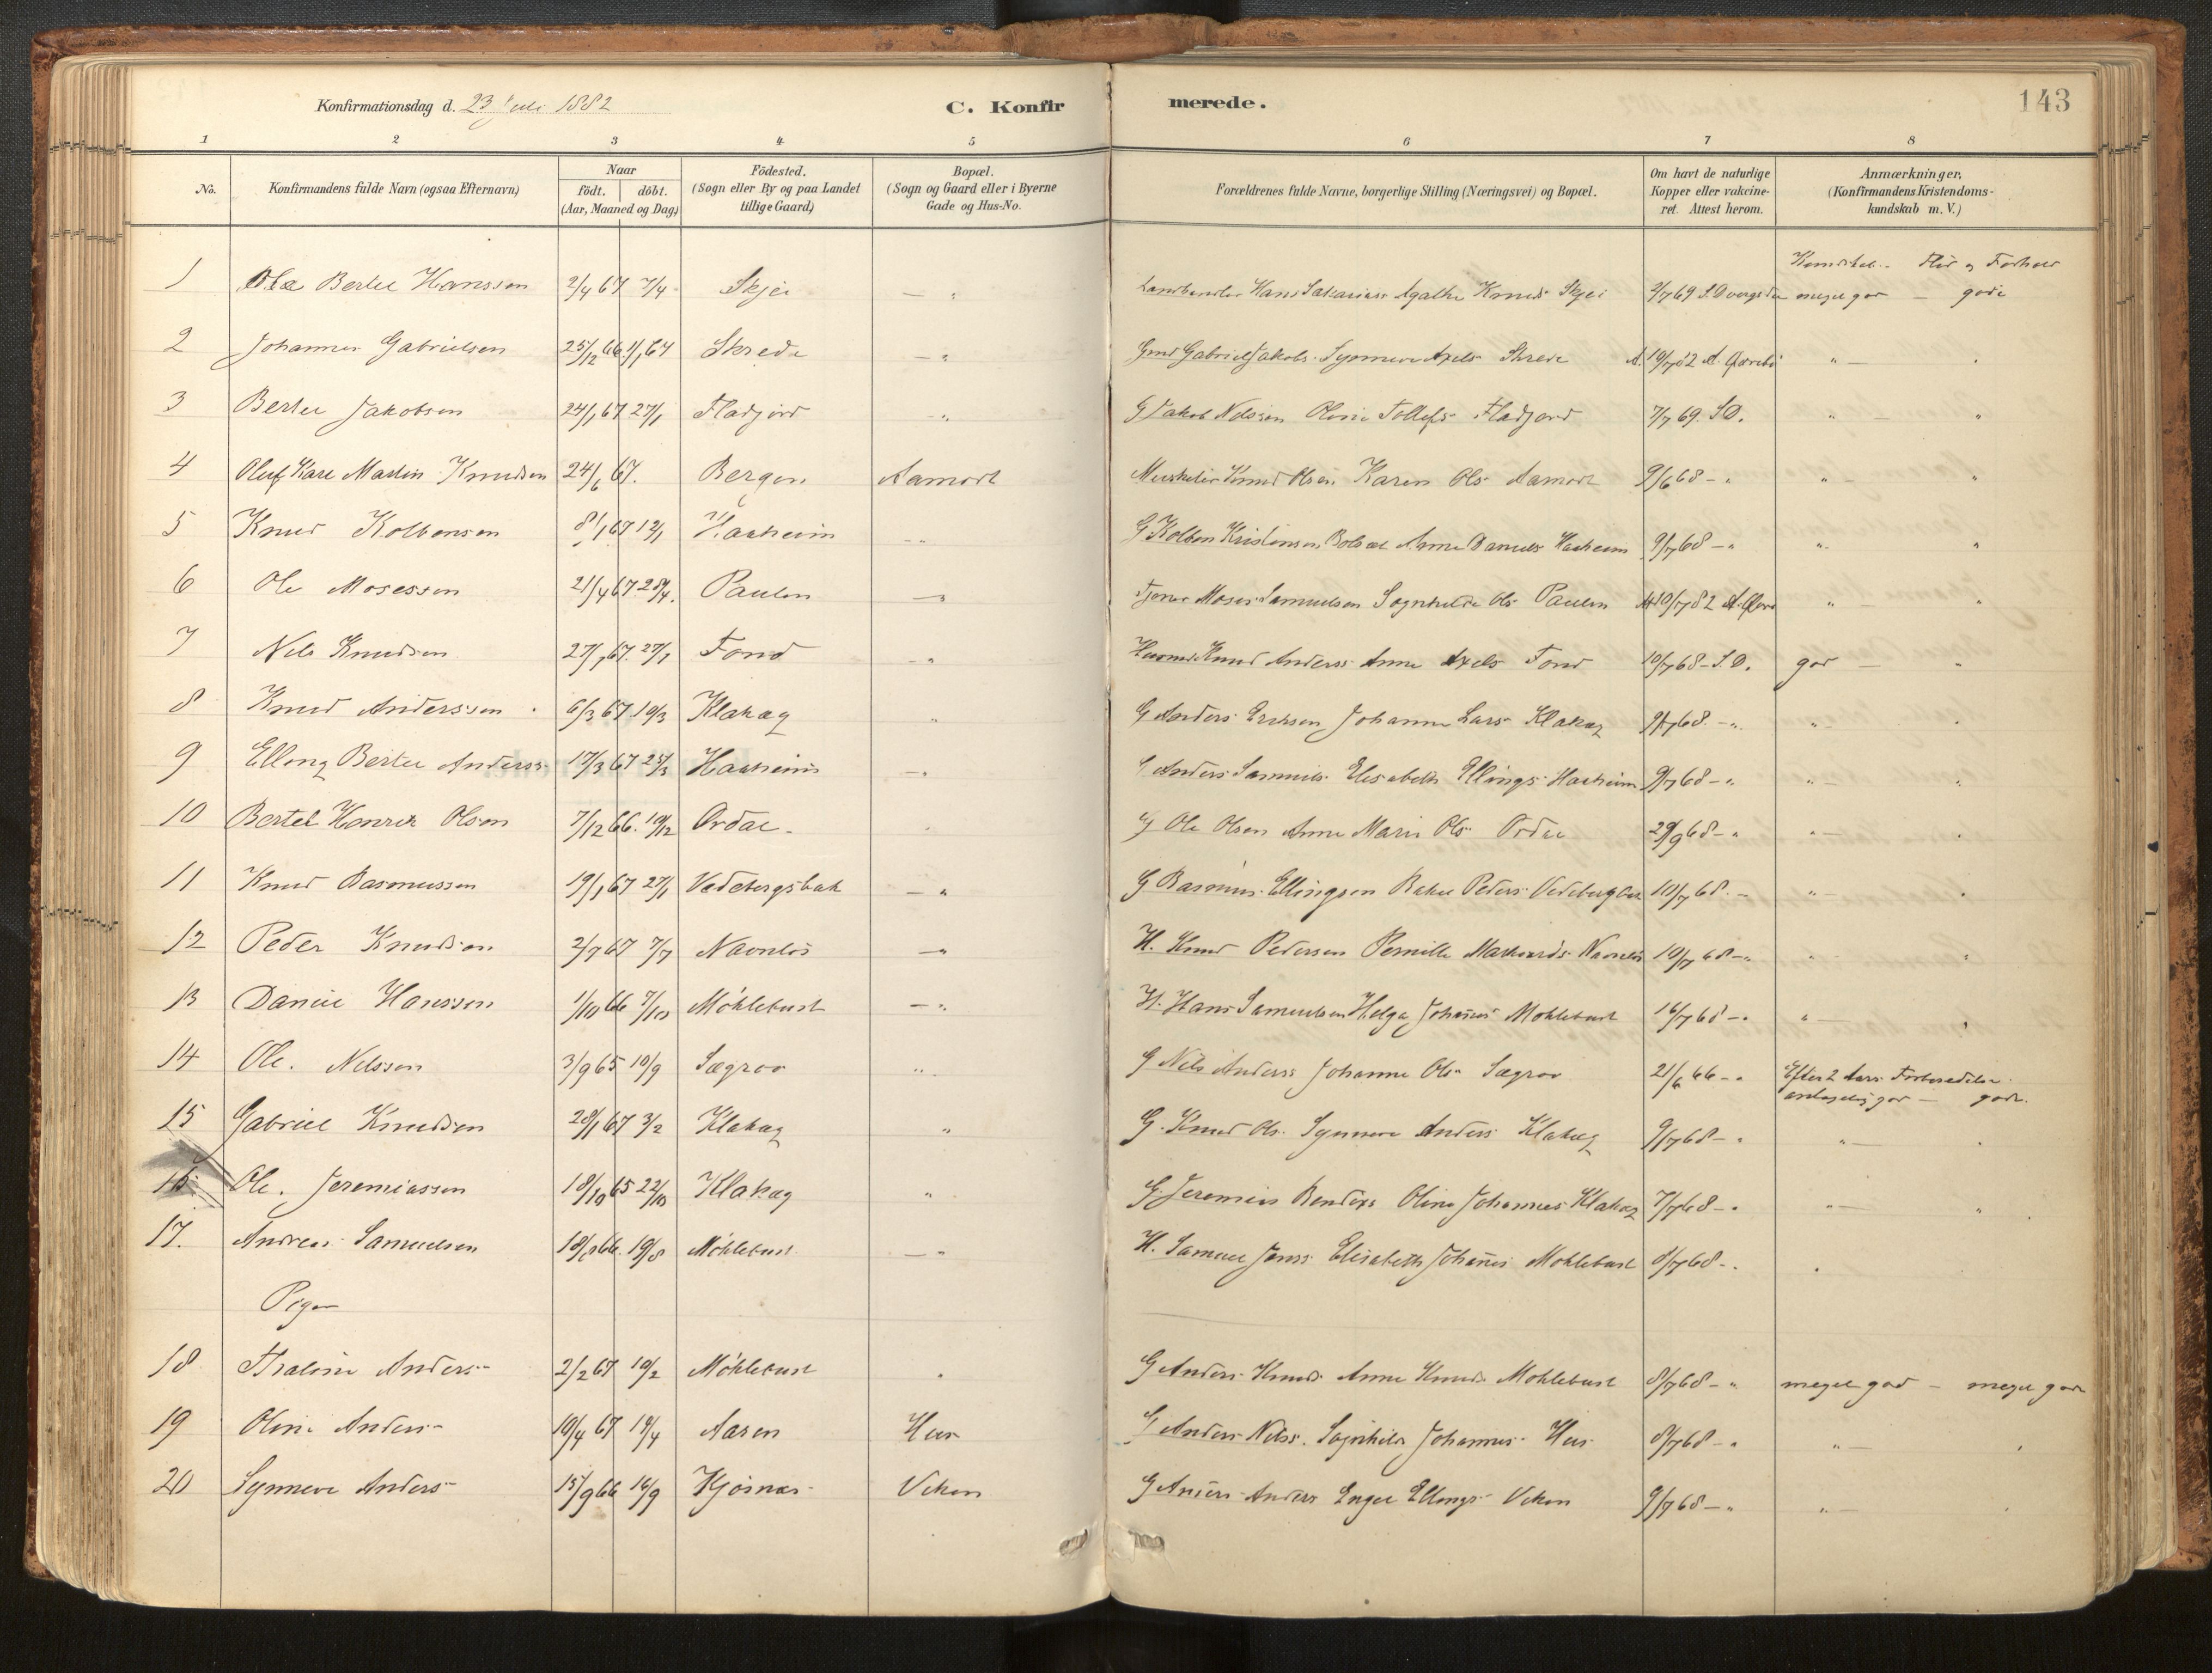 Konfirmationsdag d. 23 Juli 1882 C. Konfirmerede. 143
1 2 3 4 5 6 7 8
No. Konfirmandens fulde Navn (ogsaa Efternavn) Naar födt. döbt. (Aar, Maaned og Dag) Födested. (Sogn eller By og paa Landet tillige Gaard) Bopæl. (Sogn og Gaard eller i Byerne Gade og Hus-No. Forældrenes fulde Navne, borgerlige Stilling (Næringsvei) og Bopæl. Om havt de naturlige Kopper eller vakcineret. Attest herom. Anmærkninger, (Konfirmandens Kristendomskundskab m. V.)
Flid og Forhold
1 Ole Bertel Hanssen 2/4 67 7/4 Skjei — " Landhandler Hans Sakarias Agathe Knuds Skjei 2/7 69 meget god — gode
2 Johannes Gabrielsen 25/12 66 1/1 67 Skrede — " Gmd Gabriel Jakobs. Synneve Axels Skrede A. 10/7 82 " — "
3 Bertel Jakobsen 24/1 67 27/1 Fladjord — " G Jakob Nelssen Oline Tollefs Fladjord 7/7 69. S.D. " "
4 Oluf Karl Martin Knudsen 24/6 67. Bergen Aamodt Knud Olsen Karen Ols Aamodt 9/6 68 — " " — "
5 Knud Kolbensen 8/1 67 12/1 Haaheim — " G Kolben Kristensen Anne Daniels Haaheim 9/7 68 — " " "
6 Ole Mosessen 21/4 67 28/4. Paulen — " Moses Samuelsen Sognhilde Ols Paulen 10/7 82 " — "
7 Nils Knudsen 27/1 67. 27/1 Fond — " Husmd Knud Anderss Anne Axels Fond 10/7 68 — S.D. god — "
8 Knud Anderssen 6/3 67 10/3 Klakæg " G Anders Erichsen Johanne Lars Klakæg 9/7 68. — " " — "
9 Elling Bertel Anderss 17/3 67 25/3 Haaheim — " G Anders Samuels Elisabeth Ellings Haaheim 9/7 68 — " " — "
10 Bertel Henrik Olsen 7/12 66. 10/12 Ordal " G Ole Olsen Anne Marie Ols Ordal 29/9 68 — " " — "
11 Knud Rasmussen 19/1 67 27/1 Vedebergsbak — " G Rasmus Ellingsen Rakel Peders 10/7 68. — " — "
12 Peder Knudsen 2/7 67 7/7 Navnløs — " H. Knud Pedersen Pernille Navnløs 10/7 68 — " " — "
13 Daniel Hanssen 1/10 66 7/10 Möhlebust — " H. Hans Samuelsen Helga Johannes Möhlebust 16/7 68 — " " — "
14 Ole. Nelssen 3/9 65 10/9 Sægrov " G Nils Anderss Johanne Ols Sægrov 21/6 66 — " Efter 2 Aars Forberedelse god — gode.
15 Gabriel Knudsen 28/1 67 3/2 Klakæg " G. Knud Ols. Synneve Anders Klakæg 9/7 68 — " " — "
16 Ole. Jeremiassen 18/10 65 22/10 Klakæg " G. Jeremias Oline Johannes Klakæg 7/7 68 — " " — "
17. Andreas Samuelsen 18/8 66. 19/8 Möhlebust — " H. Samuel Janss Elisabeth Johannes Möhlebust 8/7 68 — " "
Piger
18 Thaline Anders 2/2 67 10/2 Möhlebust " G Anders Knuds. Anne Knuds Möhlebust 8/7 68 — " meget god — meget gode
19 Oline Anders 10/4 67 14/4 Aasen Hus G Anders Nilss. Johannes Hus 8/7 68 — " " — "
20 Synneve Anders 15/9 66 16/9 Kjösnes Viken G Anders Anders Engel Ellings Viken 9/7 68 — " " — "